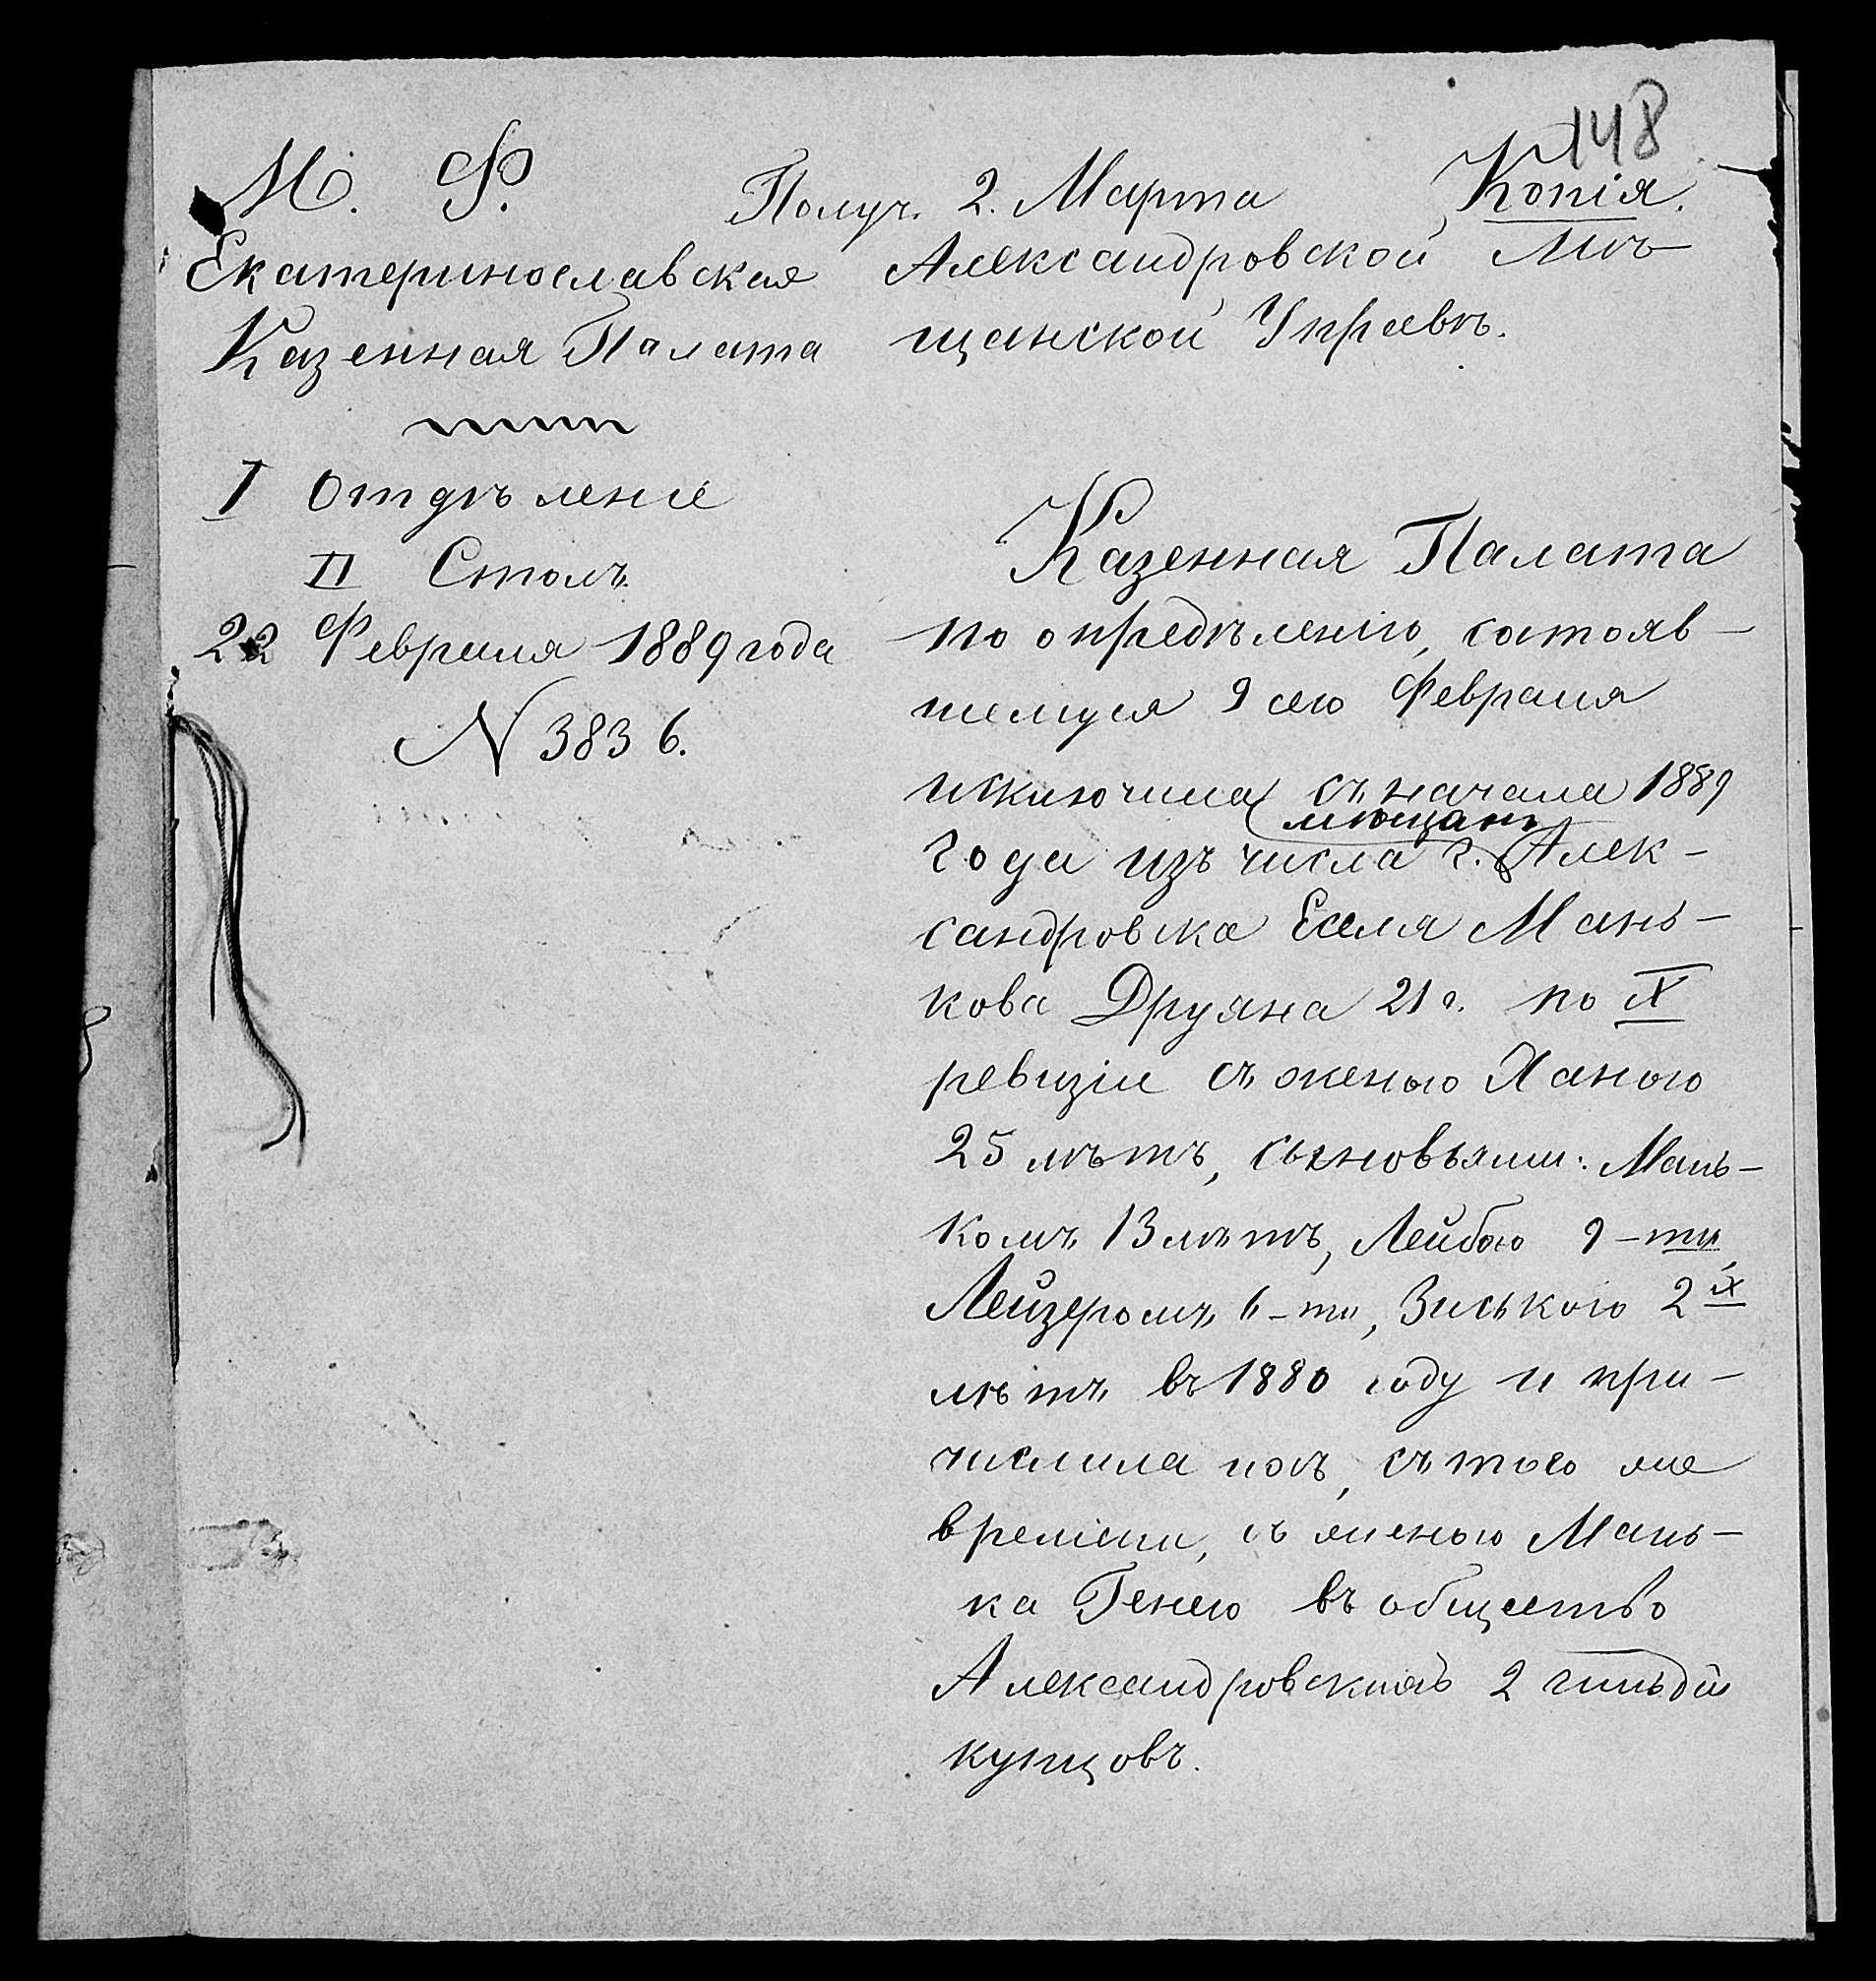 148
М. Ф.
Получ. 2. Марта
Копія.
Екатеринославская
Казенная Палата
I Отдѣленіе
II Столъ
22 Февраля 1889 года
N 3836.
Александровской Мѣ-
щанской Управѣ.
Казенная Палата
по опредѣленію, состояв-
шемуся 9 сего Февраля
исключила съ начала 1889
мѣщанъ
года изъ числа г. Алек-
сандровска Еселя Мань-
кова Друяна 21 г. по X
ревизіи съ женою Ханою
25 лѣтъ, сыновьями: Мань-
комъ 13 лѣтъ, Лейбою 9-ти,
Лейзеромъ 6-ти, Зиською 2х
лѣтъ въ 1880 году и при-
числила ихъ, съ того же
времени, съ женою Мань-
ка Генею въ общество
Александровскихъ 2 гильдіи
купцовъ.